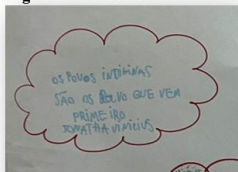 OS POVOS INDIGINAS
SÃO OS POVO QUE VEM
PRIMEIRO
JONATHA VINICIUS